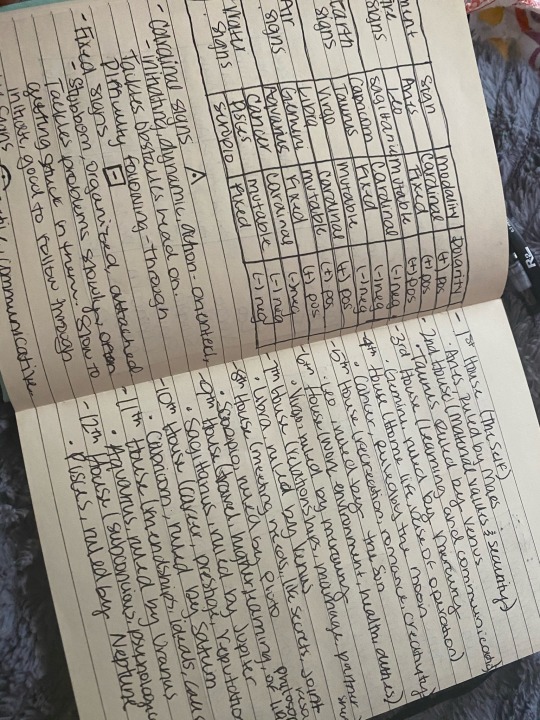 ment | sign | modality | polarity
Fire signs | Aries | Cardinal | (+) pos
Leo | Fixed | (+) pos
Sagittarius | mutable | (+) pos
Earth signs | Capricorn | Cardinal | (-) neg
Taurus | Fixed | (-) neg
Virgo | mutable | (-) neg
Air signs | Libra | Cardinal | (+) pos
Gemini | mutable | (+) pos
Aquarius | Fixed | (+) pos
Water signs | Cancer | Cardinal | (-) neg
Pisces | mutable | (-) neg
Scorpio | Fixed | (-) neg
- Cardinal signs
- Initiating, dynamic, action-oriented,
tackles obstacles head on.
Difficulty following-through
- Fixed signs
- Stubborn, organized, attached
Tackles problems slowly, often
getting stuck in them. Slow to
but good to follow through
signs communicative
- 1st House (The self)
• Aries, ruled by Mars
- 2nd House (Material values & security)
• Taurus ruled by Venus
- 3rd House (learning and communication)
• Gemini, ruled by Mercury
- 4th House (Home life, base of operation)
• Cancer, ruled by the moon
- 5th House (recreation, romance, creativity)
• Leo, ruled by the Sun
- 6th House (work environment, health, duties)
• Virgo, ruled by mercury
- 7th House (relationships, marriage, partner
• Libra ruled by Venus
- 8th House (meeting needs, life secrets, joint
• Scorpio, ruled by Pluto
- 9th House (travel, higher learning,
• Sagittarius ruled by Jupiter
- 10th House (career, prestige, reputation
• Capricorn, ruled by Saturn
- 11th House (friendships, ideals,
• Aquarius, ruled by Uranus
- 12th House (subconscious, psychologic
• Pisces, ruled by Neptune